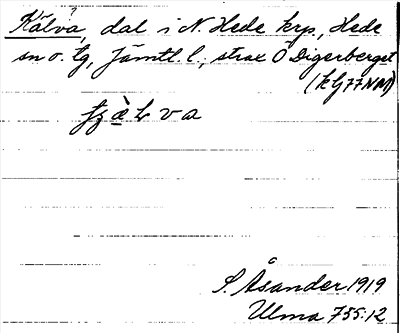 Kälva, dal i N. Hede krp, Hede
sn o. tg, Jämtl. l.; strax Ö Digerberget
(kg 77 NM)
S. Åsander 1919
Ulma 755:12